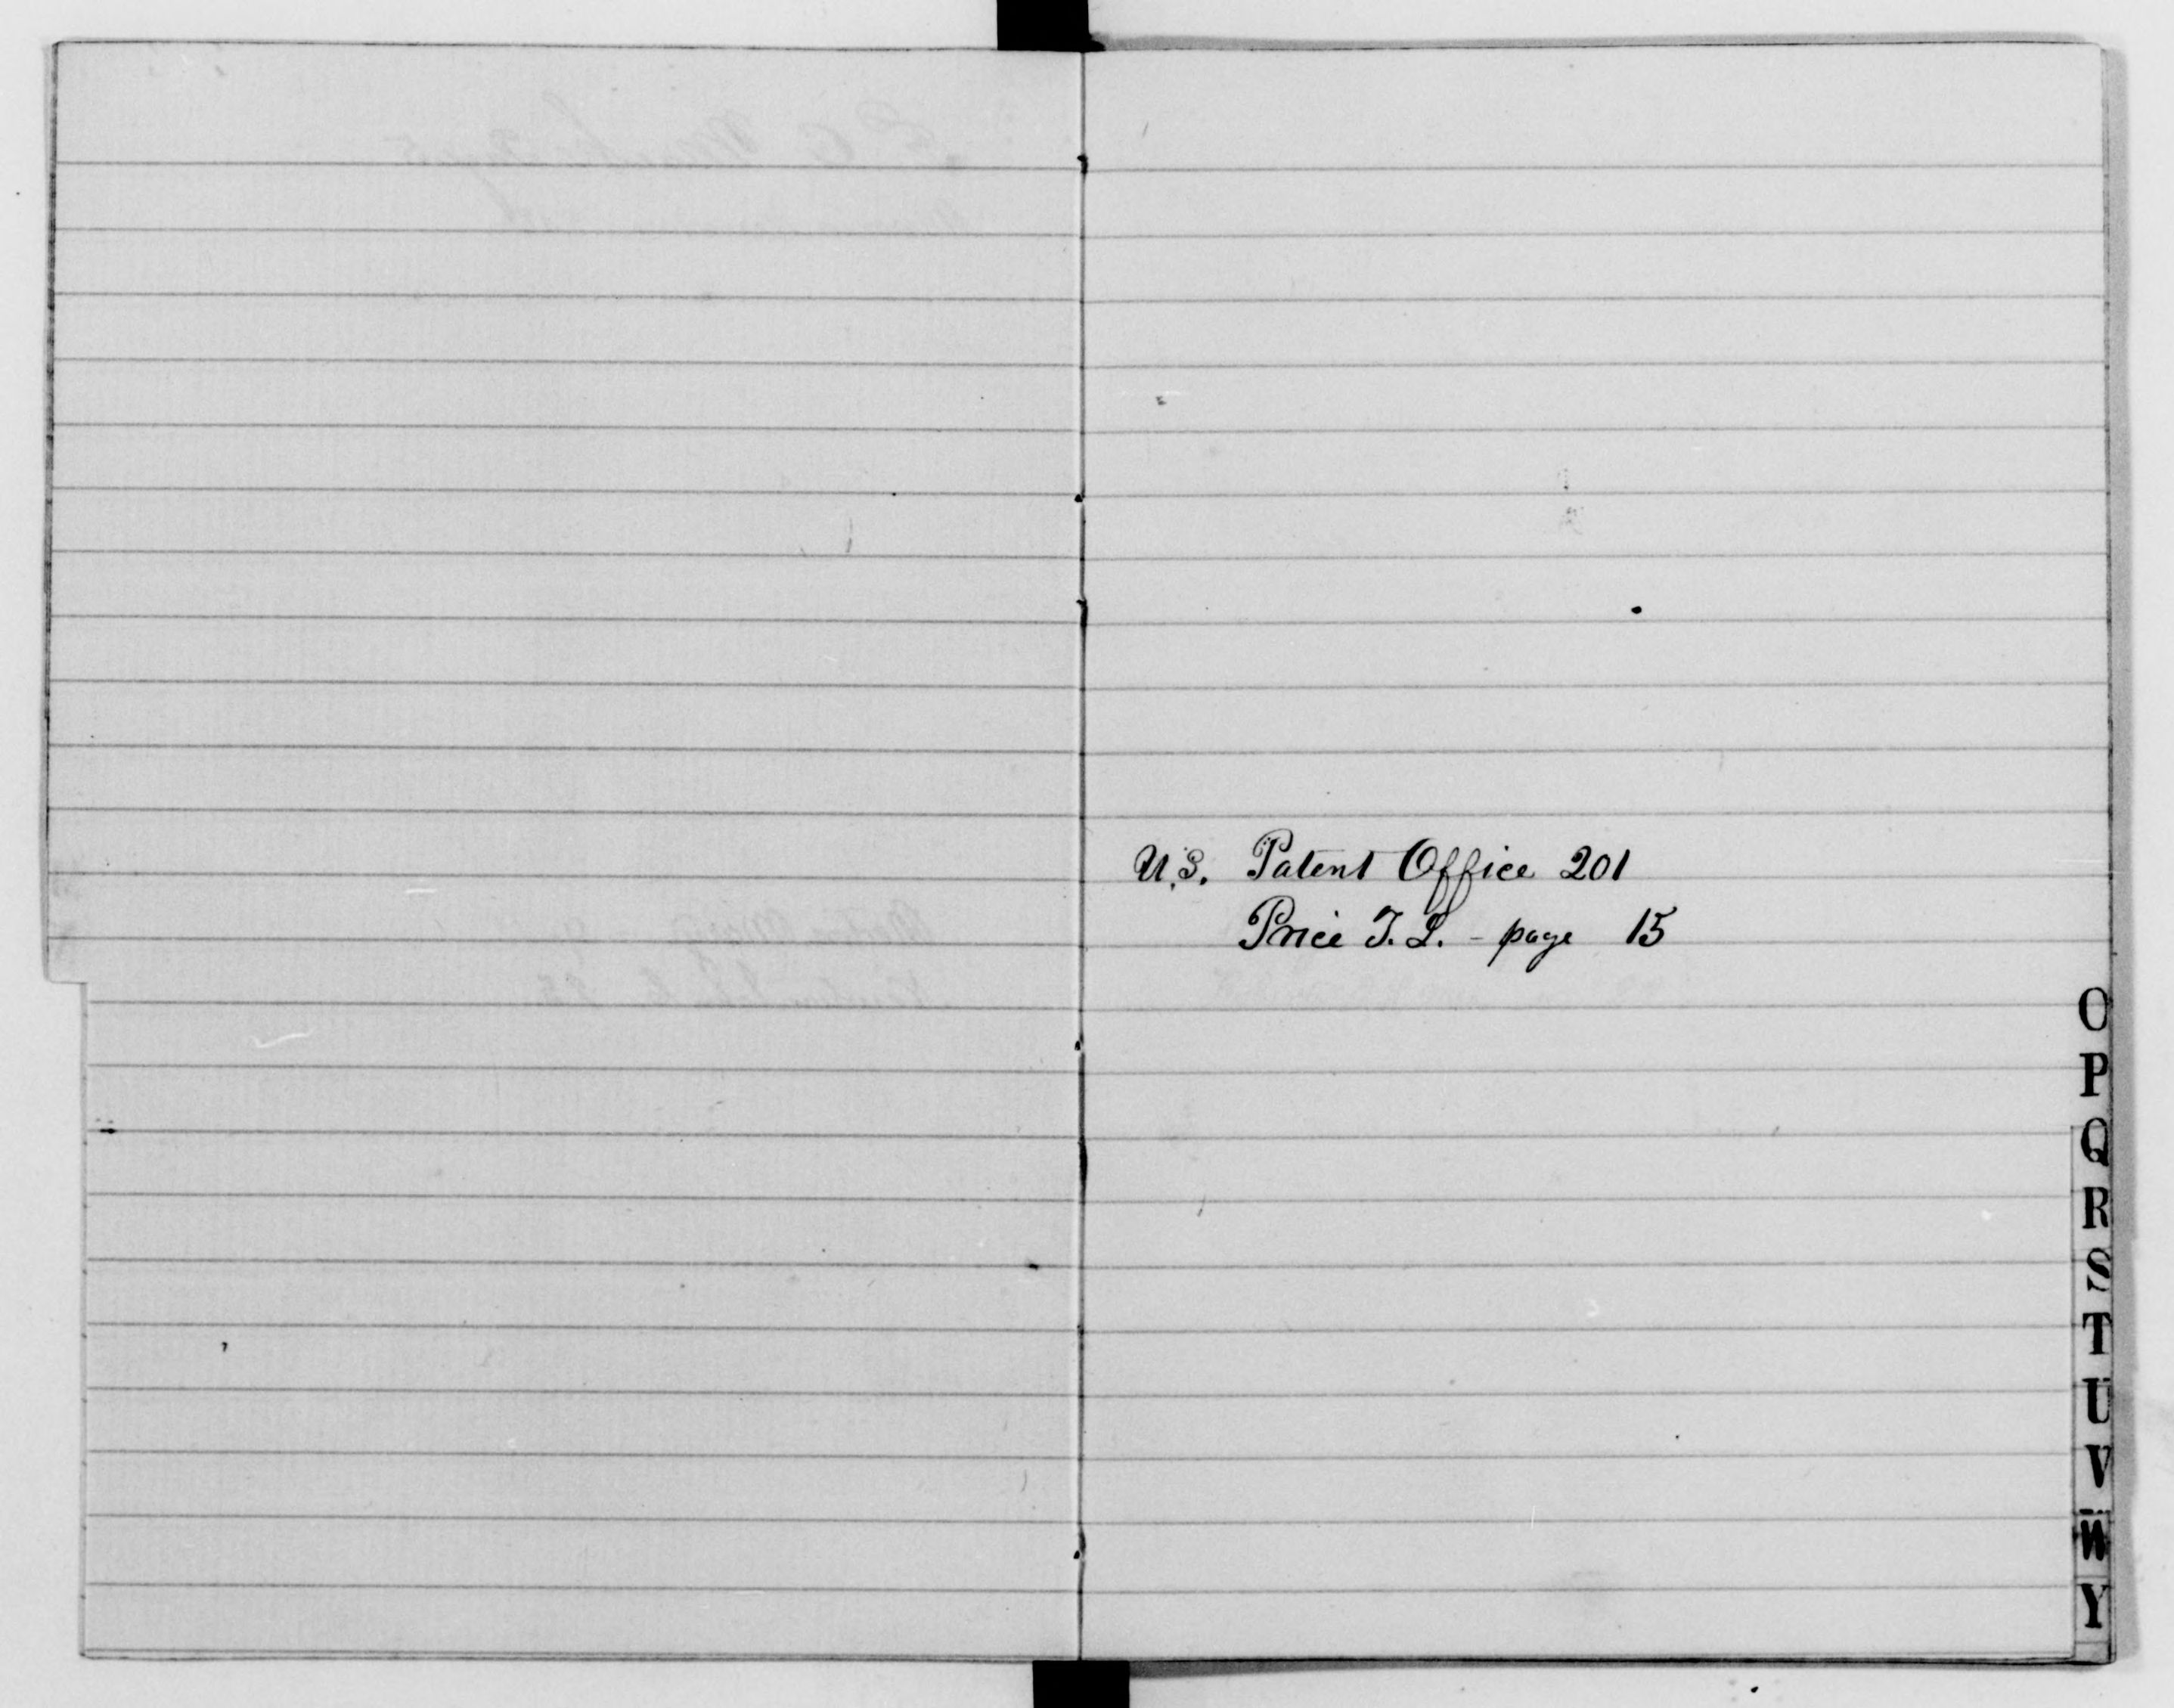 U.S. Patent Office 201
Price T. L. - page 15
O
P
Q
R
S
T
U
V
W
Y